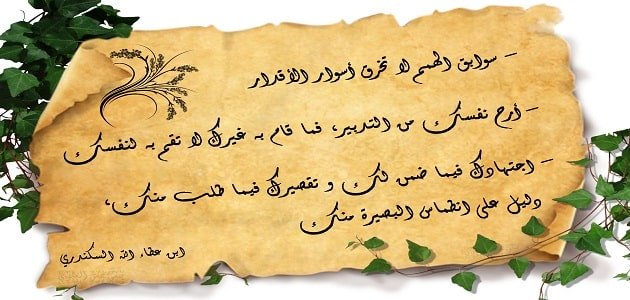 – سوابق الهمم لا تخرق أسوار الأقدار
– أرح نفسك من التدبير، فما قام به غيرك لا تقم به لنفسك
– اجتهادك فيما ضمن لك و تقصيرك فيما طلب منك،
دليل على انطماس البصيرة منك
ابن عطاء الله السكندري